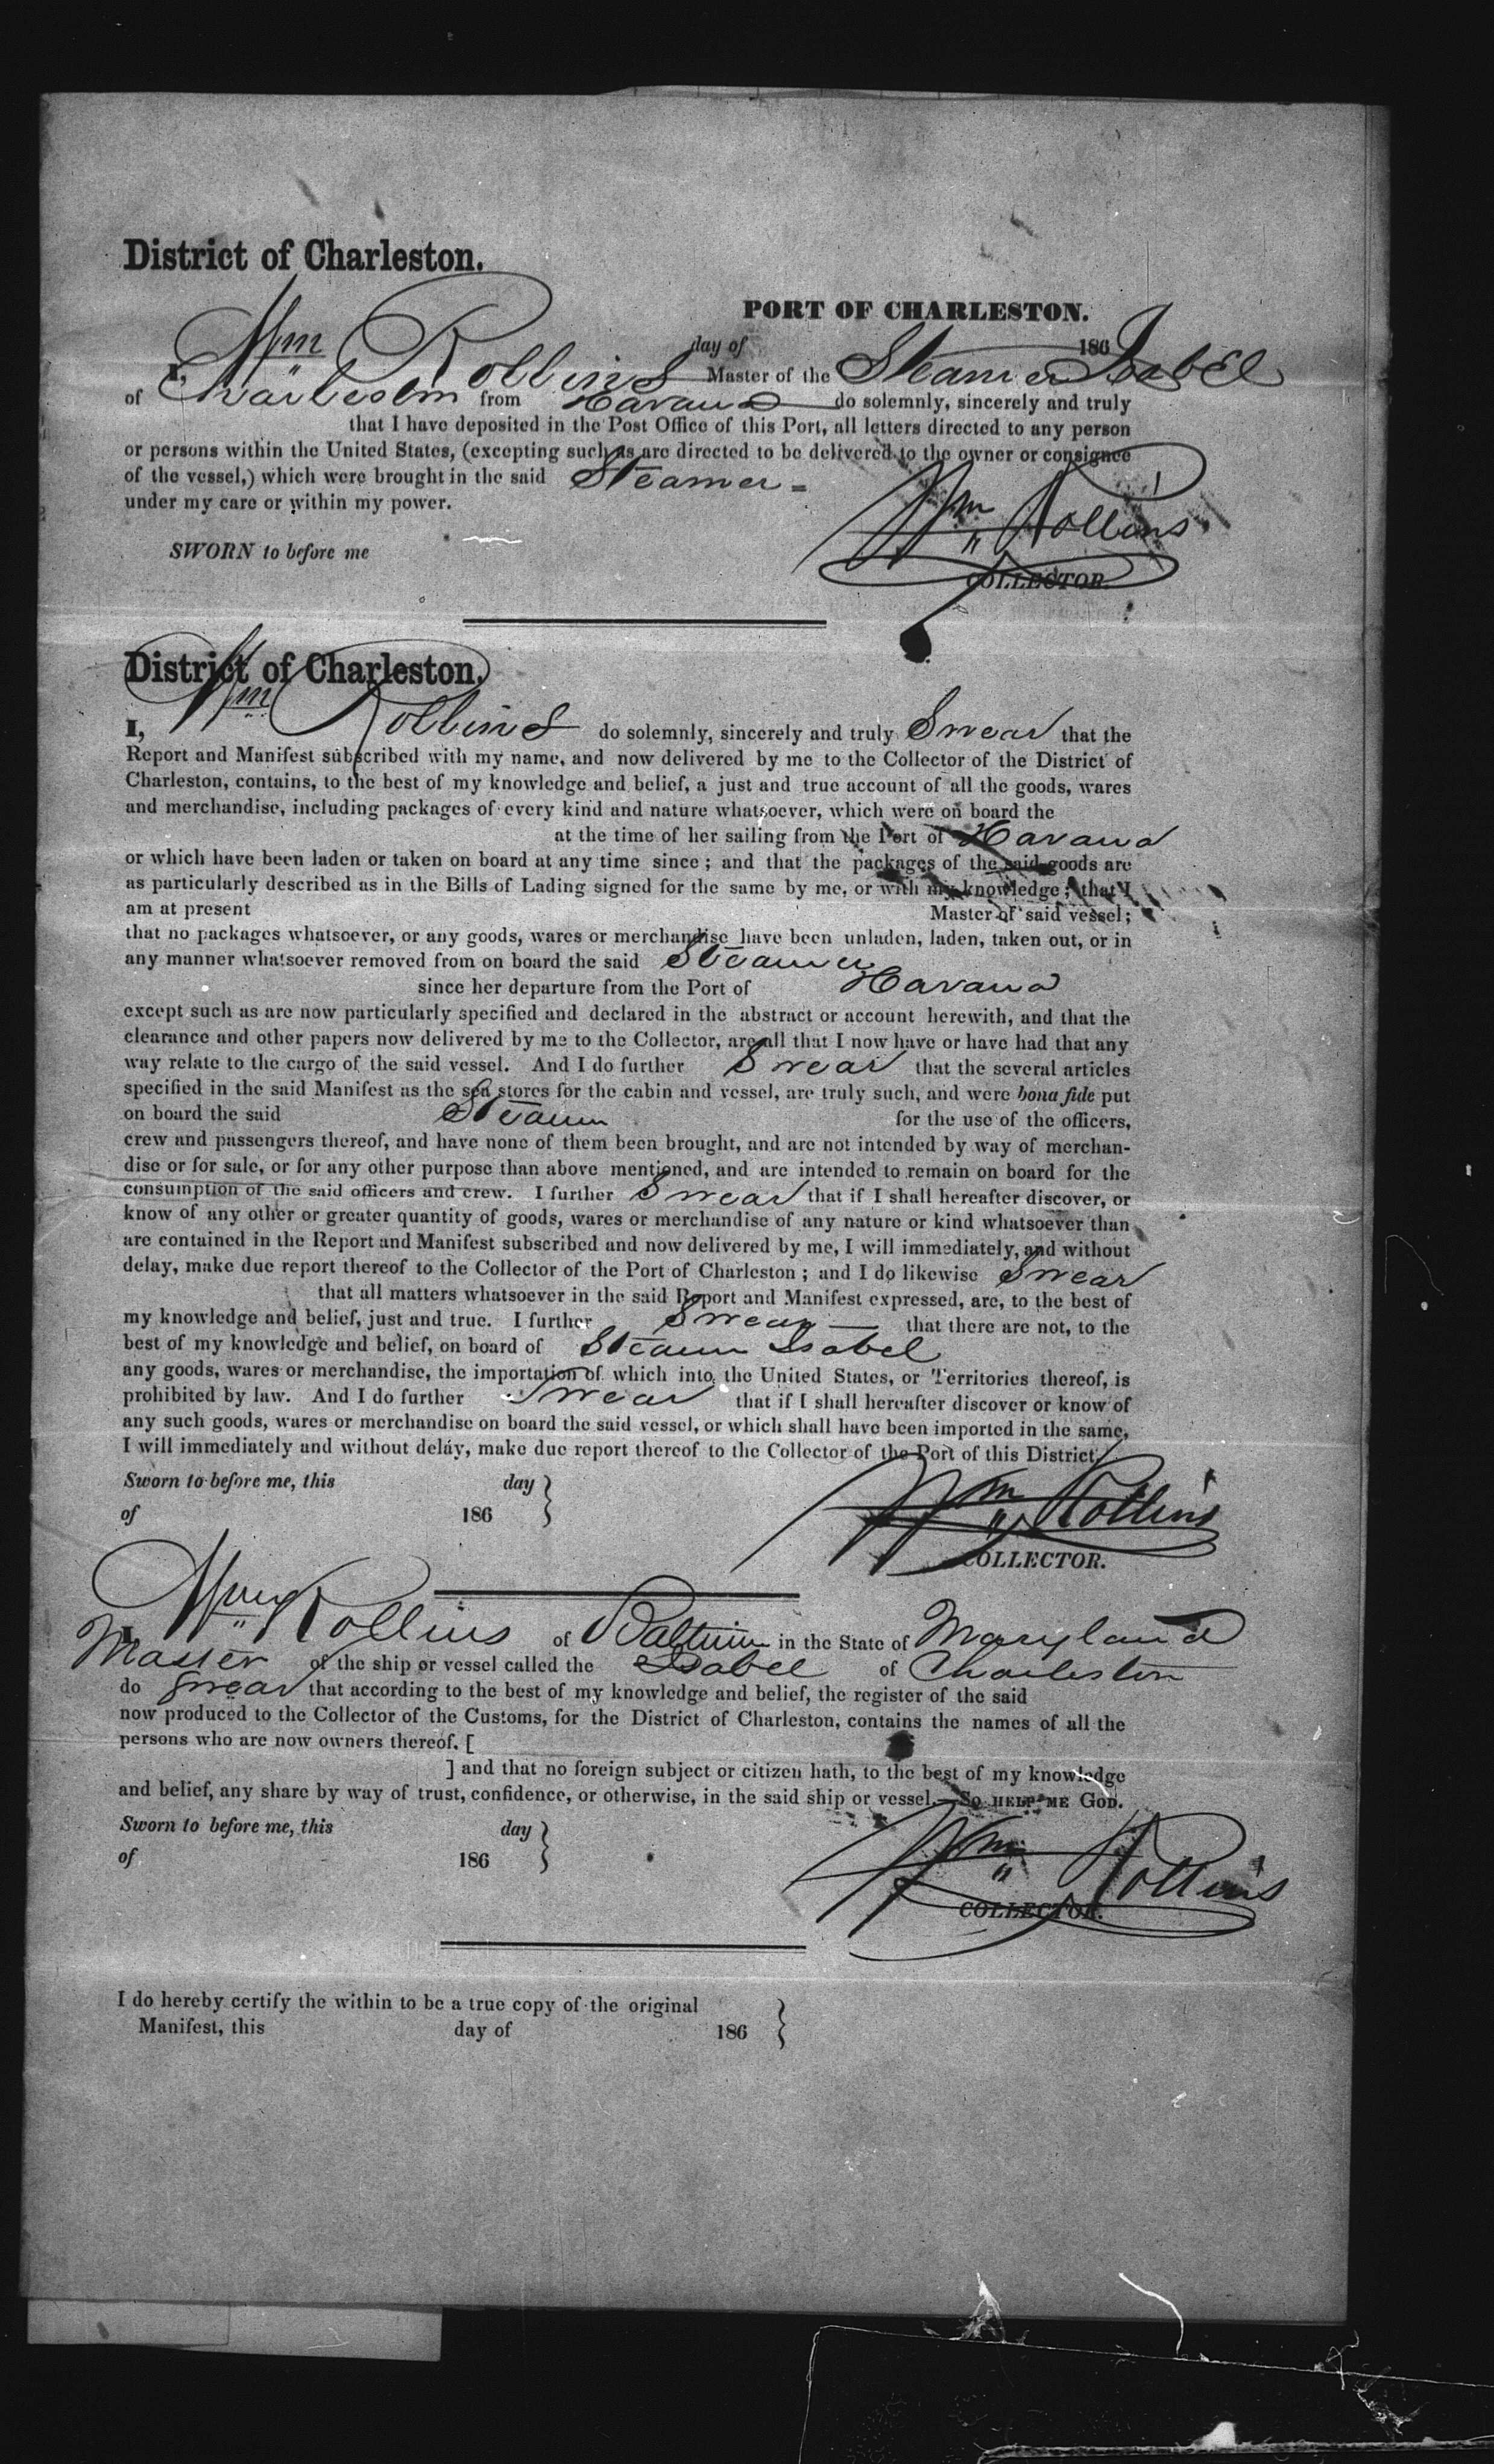 District of Charleston.
PORT OF CHARLESTON.
day of 186
I, Wm Rollins Master of the Steamer Isabel
of Charleston from Havana do solemnly, sincerely and truly
that I have deposited in the Post Office of this Port, all letters directed to any person
or persons within the United States, (excepting such as are directed to be delivered to the owner or consignee
of the vessel,) which were brought in the said Steamer
under my care or within my power.
Wm Rollins
SWORN to before me
COLLECTOR.
District of Charleston.
I, Wm Rollins do solemnly, sincerely and truly Swear that the
Report and Manifest subscribed with my name, and now delivered by me to the Collector of the District of
Charleston, contains, to the best of my knowledge and belief, a just and true account of all the goods, wares
and merchandise, including packages of every kind and nature whatsoever, which were on board the
at the time of her sailing from the Port of Havana
or which have been laden or taken on board at any time since; and that the packages of the said goods are
as particularly described as in the Bills of Lading signed for the same by me, or with my knowledge; that I
am at present Master of said vessel;
that no packages whatsoever, or any goods, wares or merchandise have been unladen, laden, taken out, or in
any manner whatsoever removed from on board the said Steamer
since her departure from the Port of Havana
except such as are now particularly specified and declared in the abstract or account herewith, and that the
clearance and other papers now delivered by me to the Collector, are all that I now have or have had that any
way relate to the cargo of the said vessel. And I do further Swear that the several articles
specified in the said Manifest as the sea stores for the cabin and vessel, are truly such, and were bona fide put
on board the said Steamer for the use of the officers,
crew and passengers thereof, and have none of them been brought, and are not intended by way of merchan-
dise or for sale, or for any other purpose than above mentioned, and are intended to remain on board for the
consumption of the said officers and crew. I further Swear that if I shall hereafter discover, or
know of any other or greater quantity of goods, wares or merchandise of any nature or kind whatsoever than
are contained in the Report and Manifest subscribed and now delivered by me, I will immediately, and without
delay, make due report thereof to the Collector of the Port of Charleston; and I do likewise Swear
that all matters whatsoever in the said Report and Manifest expressed, are, to the best of
my knowledge and belief, just and true. I further Swear that there are not, to the
best of my knowledge and belief, on board of Steamer Isabel
any goods, wares or merchandise, the importation of which into the United States, or Territories thereof, is
prohibited by law. And I do further Swear that if I shall hereafter discover or know of
any such goods, wares or merchandise on board the said vessel, or which shall have been imported in the same,
I will immediately and without delay, make due report thereof to the Collector of the Port of this District.
Sworn to before me, this day
of 186
Wm Rollins
COLLECTOR.
I, Wm Rollins of Baltimore in the State of Maryland
Master of the ship or vessel called the Isabel of Charleston
do Swear that according to the best of my knowledge and belief, the register of the said
now produced to the Collector of the Customs, for the District of Charleston, contains the names of all the
persons who are now owners thereof. [
] and that no foreign subject or citizen hath, to the best of my knowledge
and belief, any share by way of trust, confidence, or otherwise, in the said ship or vessel.—SO HELP ME GOD.
Sworn to before me, this day
of 186
Wm Rollins
COLLECTOR.
I do hereby certify the within to be a true copy of the original
Manifest, this day of 186